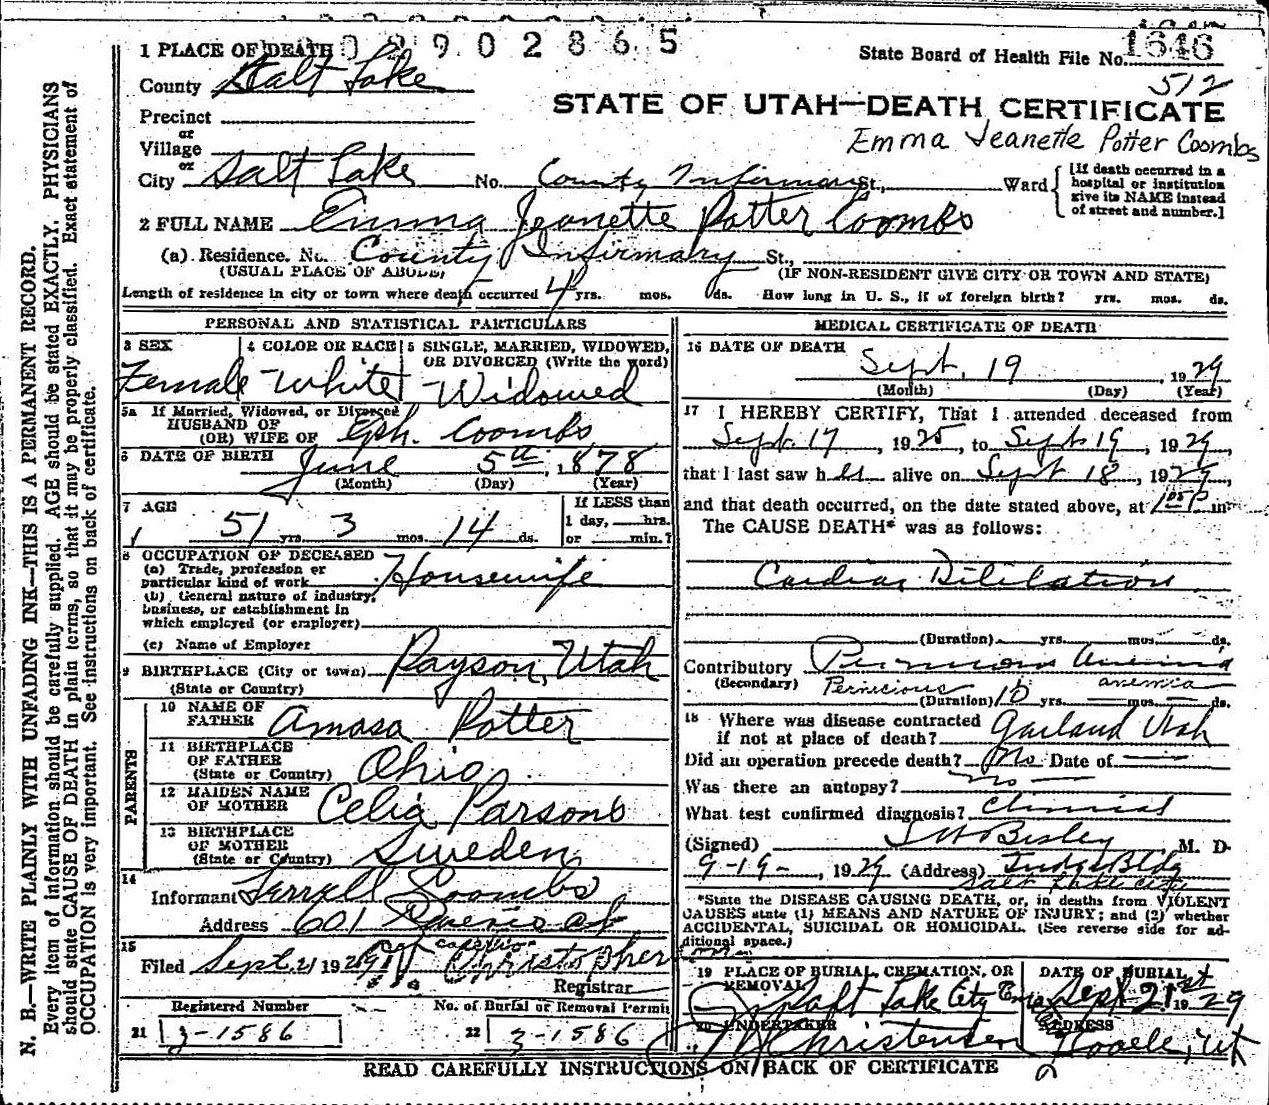 1 PLACE OF DEATH 02902865
State Board of Health File No. 1646
512
County Salt Lake
STATE OF UTAH—DEATH CERTIFICATE
Precinct
or
Village
Emma Jeanette Potter Coombs
or
City Salt Lake No. County Infirmary St., Ward
[If death occurred in a hospital or institution give its NAME instead of street and number.]
2 FULL NAME Emma Jeanette Potter Coombs
(a) Residence. No. County Infirmary St.,
(USUAL PLACE OF ABODE) (IF NON-RESIDENT GIVE CITY OR TOWN AND STATE)
Length of residence in city or town where death occurred 4 yrs. mos. ds. How long in U. S., if of foreign birth? yrs. mos. ds.
PERSONAL AND STATISTICAL PARTICULARS
3 SEX 4 COLOR OR RACE 5 SINGLE, MARRIED, WIDOWED, OR DIVORCED (Write the word)
Female White Widowed
5a If Married, Widowed, or Divorced
HUSBAND OF
(OR) WIFE OF Eph. Coombs
6 DATE OF BIRTH June 5th, 1878
(Month) (Day) (Year)
7 AGE If LESS than
51 yrs. 3 mos. 14 ds. 1 day, hrs.
or min.?
8 OCCUPATION OF DECEASED
(a) Trade, profession or
particular kind of work Housewife
(b) General nature of industry,
business, or establishment in
which employed (or employer)
(c) Name of Employer
9 BIRTHPLACE (City or town) Payson, Utah
(State or Country)
PARENTS
10 NAME OF
FATHER Amasa Potter
11 BIRTHPLACE
OF FATHER
(State or Country) Ohio
12 MAIDEN NAME
OF MOTHER Celia Parsons
13 BIRTHPLACE
OF MOTHER
(State or Country) Sweden
14
Informant Terrell Coombs
Address 601
15
Filed Sept. 21 1929 Christopher
Registrar
Registered Number No. of Burial or Removal Permit
21 3-1586 22 3-1586
MEDICAL CERTIFICATE OF DEATH
16 DATE OF DEATH
Sept. 19, 1929
(Month) (Day) (Year)
17 I HEREBY CERTIFY, That I attended deceased from
Sept. 17, 1925, to Sept 19, 1929,
that I last saw her alive on Sept 18, 1929,
and that death occurred, on the date stated above, at m.
The CAUSE DEATH* was as follows:
Cardiac Dilitation
(Duration) yrs. mos. ds.
Contributory Pernicious Anemia
(Secondary) Pernicious anemia
(Duration) 10 yrs. mos. ds.
18 Where was disease contracted
if not at place of death? Garland Utah
Did an operation precede death? No Date of
Was there an autopsy? no
What test confirmed diagnosis? Clinical
(Signed) M. D.
9-19-, 1929 (Address) Judge Bldg
Salt Lake City
*State the DISEASE CAUSING DEATH, or, in deaths from VIOLENT
CAUSES state (1) MEANS AND NATURE OF INJURY; and (2) whether
ACCIDENTAL, SUICIDAL OR HOMICIDAL. (See reverse side for ad-
ditional space.)
19 PLACE OF BURIAL, CREMATION, OR REMOVAL DATE OF BURIAL
Salt Lake City Sept 21st 1929
20 UNDERTAKER ADDRESS
Christensen Tooele, Ut
READ CAREFULLY INSTRUCTIONS ON BACK OF CERTIFICATE
N. B.—WRITE PLAINLY WITH UNFADING INK—THIS IS A PERMANENT RECORD.
Every item of information should be carefully supplied. AGE should be stated EXACTLY. PHYSICIANS
should state CAUSE OF DEATH in plain terms, so that it may be properly classified. Exact statement of
OCCUPATION is very important. See instructions on back of certificate.